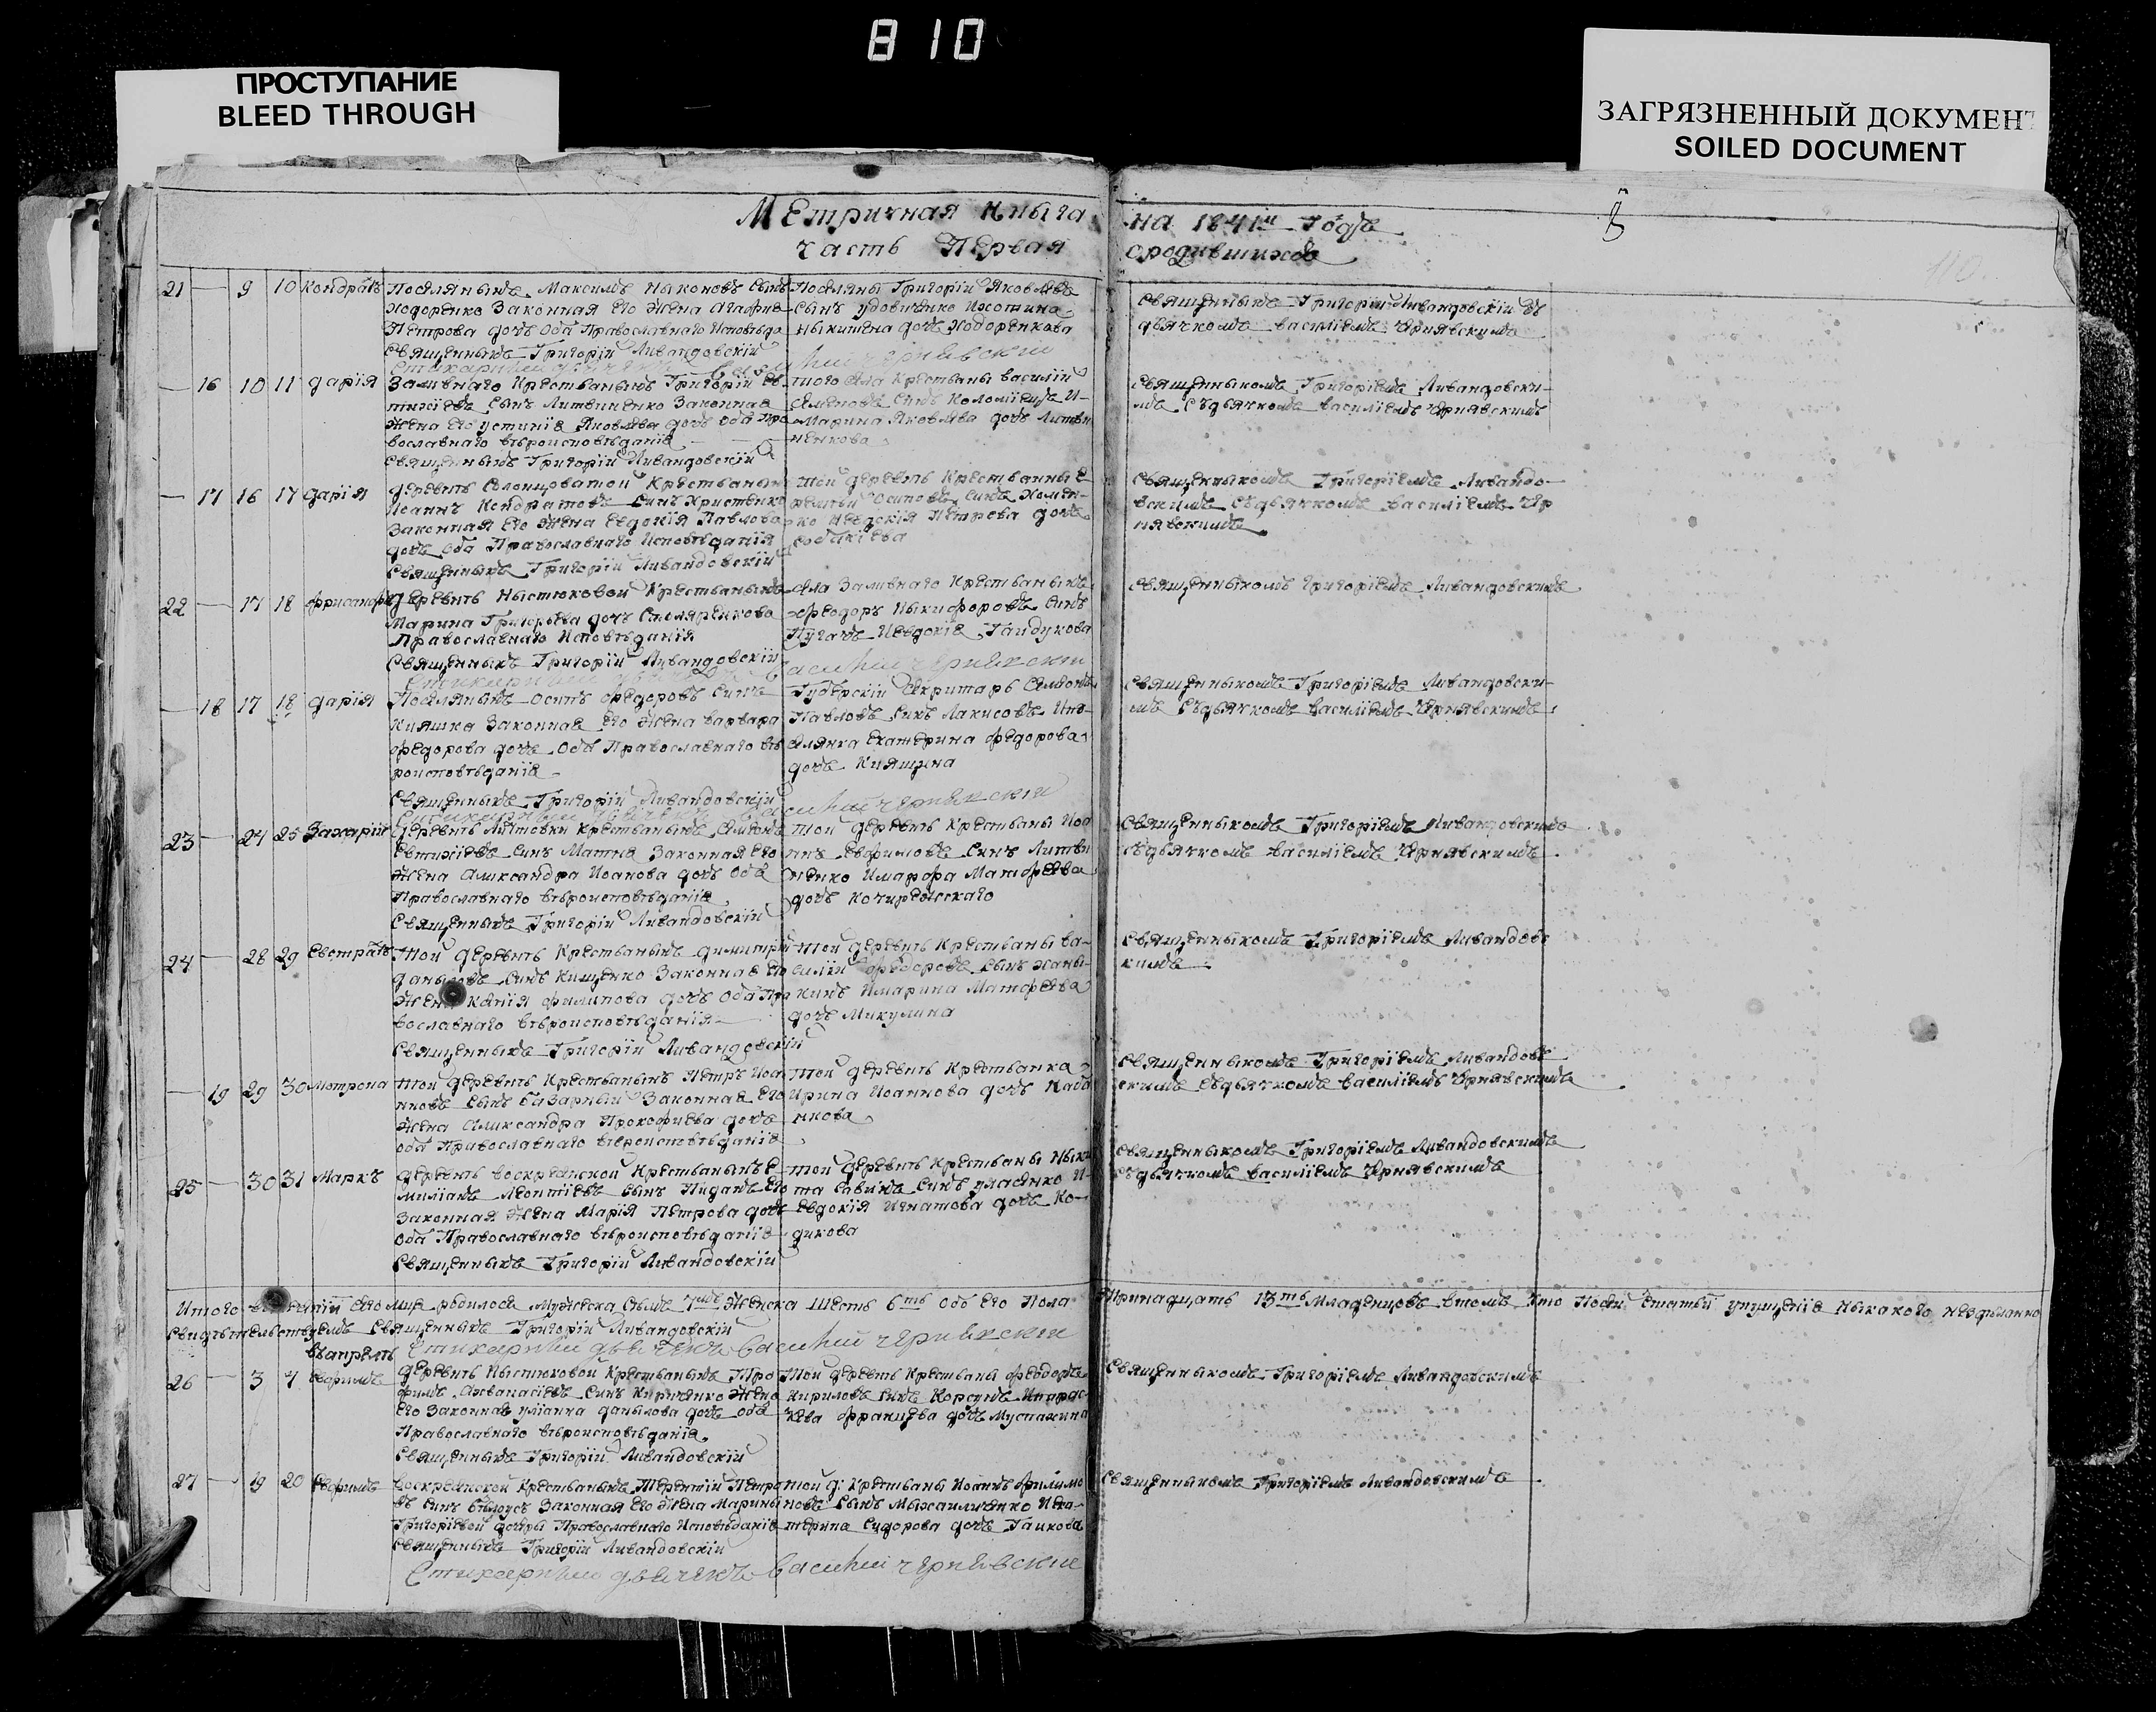 810
ПРОСТУПАНИЕ
BLEED THROUGH
ЗАГРЯЗНЕННЫЙ ДОКУМЕНТ
SOILED DOCUMENT
МЕтричная Книга на 1841й Годъ
часть Первая ородившихся
110
21 — 9 10 Кондратъ
Поселяныкъ Максимъ Ныконовъ Сынъ
Ходоренко Законная Его Жена Агафия
Петрова дочъ Оба Православнаго Исповѣда
Священныкъ Григорій Ливандовскій
Поселяны Григорій Яковлевъ
Сынъ Удовиченко
Ныкитена дочъ Ходоренкова
Священныкомъ Григоріемъ Ливандовскім Съ
дьячкомъ василіемъ Чернявскимъ
— 16 10 11 дарія
Заливнаго Крестьаныкъ Григорій Ев
тихіевъ Сынъ Литвиненко Законная
Жена Его Устинія Яковлева дочъ Оба Пра
вославнаго вѣроисповѣданія
Священныкъ Григорій Ливандовскій
того Села Крестьаны василій
Семеновъ Синъ Коломіецъ И-
Марина Яковлева дочъ Литви
ненкова
Священныкомъ Григоріемъ Ливандовски-
мъ Съдьячкомъ василіемъ Чернявскимъ
— 17 16 17 дарія
деревнѣ Солонцоватой Крестьанын
Иоаннъ Кондратовъ Синъ Христенко
Законная Его Жена Евдокія Павлова
дочъ Оба Православнаго Исповѣданія
Священныкъ Григорій Ливандовскій
той деревнѣ Крестьанны Е
Осиповъ Синъ Хомен-
ко Иевдокія Петрова дочъ
Священныкомъ Григоріемъ Ливандо-
вскимъ Съдьячкомъ василіемъ Чер
нявскимъ
22 — 17 18
деревнѣ Ныстюковой Крестьаныкъ
Марина Григорьева дочъ Столяренкова
Православнаго Исповѣданія
Священныкъ Григорій Ливандовскій
Села Заливнаго Крестьаныкъ
Феодоръ Ныкифоровъ Синъ
Пугачъ Иевдокія Гайдукова
Священныкомъ Григоріемъ Ливандовскимъ
— 18 17 18 дарія
Поселяныкъ Осипъ Федоровъ Синъ
Кияшко Законная Его Жена варвара
Федорова дочъ Оба Православнаго вѣ
роисповѣданія
Священныкъ Григорій Ливандовскій
Губерскій Секритарь Семенъ
Павловъ Синъ Лакисовъ Ипо-
селянка Екатерина Федорова
дочъ Кияшкина
Священныкомъ Григоріемъ Ливандовски-
мъ Съдьячкомъ василіемъ Чернявскимъ
23 — 24 25 Захарій
деревнѣ Литовки Крестьаныкъ Семенъ
Евтихіевъ Синъ Матня Законная Его
Жена Александра Иоанова дочъ Оба
Православнаго вѣроисповѣданія
Священныкъ Григорій Ливандовскій
той деревнѣ Крестьаны Иоа
ннъ Ефимовъ Синъ Литви
ненко Имарфа Матфеева
дочъ Кочережскаго
Священныкомъ Григоріемъ Ливандовскимъ
Съдьячкомъ василіемъ Чернявскимъ
24 — 28 29 Евстратъ
той деревнѣ Крестьаныкъ димитрій
даныловъ Синъ Кищенко Законная Его
Жена Ксенія Филипова дочъ Оба Пра
вославнаго вѣроисповѣданія
Священныкъ Григорій Ливандовскій
той деревнѣ Крестьаны ва-
силій Федоровъ Сынъ Ханы-
кинъ Имарина Матфеева
дочъ Микулина
Священныкомъ Григоріемъ Ливандовс
кимъ
— 19 29 30 Мотрона
той деревнѣ Крестьаныкъ Петръ Иоа
нновъ Сынъ Базарный Законная Его
Жена Александра Прокофиева дочъ
оба Православнаго вѣроисповѣданія
той деревнѣ Крестьанка
Ирина Иоаннова дочъ Каба
нкова
Священныкомъ Григоріемъ Ливандовс
скимъ Съдьячкомъ василіемъ Чернявскимъ
25 — 30 31 Маркъ
деревнѣ воскресенской Крестьаныкъ Е
миліанъ Леонтіевъ Сынъ Пиданъ Его
Законная Жена Марія Петрова дочъ
Оба Православнаго вѣроисповѣданія
Священныкъ Григорій Ливандовскій
той деревнѣ Крестьаны Ныки
та Савинъ Синъ Уласенко И-
Евдокія Игнатова дочъ Ко-
дикова
Священныкомъ Григоріемъ Ливандовскимъ
Съдьячкомъ василіемъ Чернявскимъ
Итого родилося Мужеска Седмъ 7мъ Женска Шесть 6ть Обоего Пола Тринадцать 13ть Младенцовъ втомъ Что Посей Статьи упущенія Ныкакого несдѣланно
Свидѣтельствуемъ Священныкъ Григорій Ливандовскій
Стихарный дьячекъ василий чернявский
въапрелѣ
26 — 3 4 Ефримъ
деревнѣ Ныстюковой Крестьаныкъ Тро
фимъ Афанасіевъ Синъ Кириченко Жена
Его Законная Уліанна данылова дочъ оба
Православнаго вѣроисповѣданія
Священныкъ Григорій Ливандовскій
той деревнѣ Крестьаны Феодоръ
Кириловъ Синъ Корсунъ Ипарас-
кева Францева дочъ
Священныкомъ Григоріемъ Ливандовскимъ
27 — 19 20 Ефримъ
воскресенской Крестьаныкъ Терентій Петро
въ Синъ Бѣлоусъ Законная Его Жена Марины
Григоріевой дочери Православнаго Исповѣданія
Священныкъ Григорій Ливандовскій
той д: Крестьаны Иоанъ Филимо
новъ Сынъ Мыхайличенко Иека-
терина Сидорова дочъ Гаикова
Священныкомъ Григоріемъ Ливандовскимъ
Стихарный дьячекъ василий чернявский